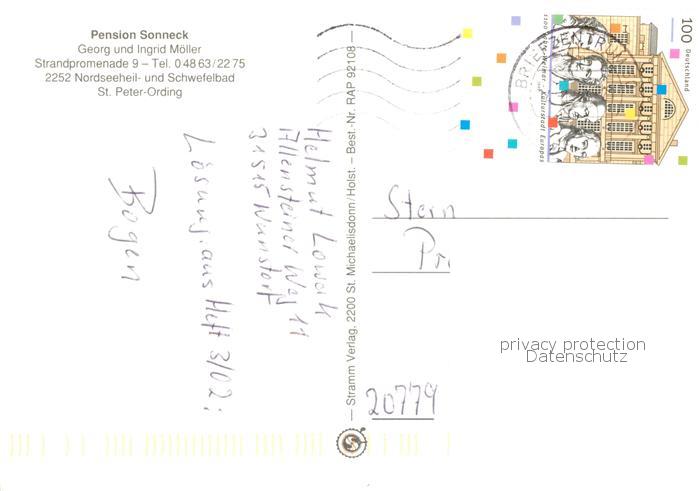 Pension Sonneck
Georg und Ingrid Möller
Strandpromenade 9 – Tel. 0 48 63 / 22 75
2252 Nordseeheil- und Schwefelbad
St. Peter-Ording
Helmut
Allensteiner Weg 11
31515 Wunstorf
Lösung aus Heft 3/02:
Bogen
— Stramm Verlag, 2200 St. Michaelisdonn/Holst. – Best.-Nr. RAP 92108 —
100 Deutschland
Kulturstadt Europas
BRIEFZENTRUM
Stern
Pr
20779
privacy protection
Datenschutz